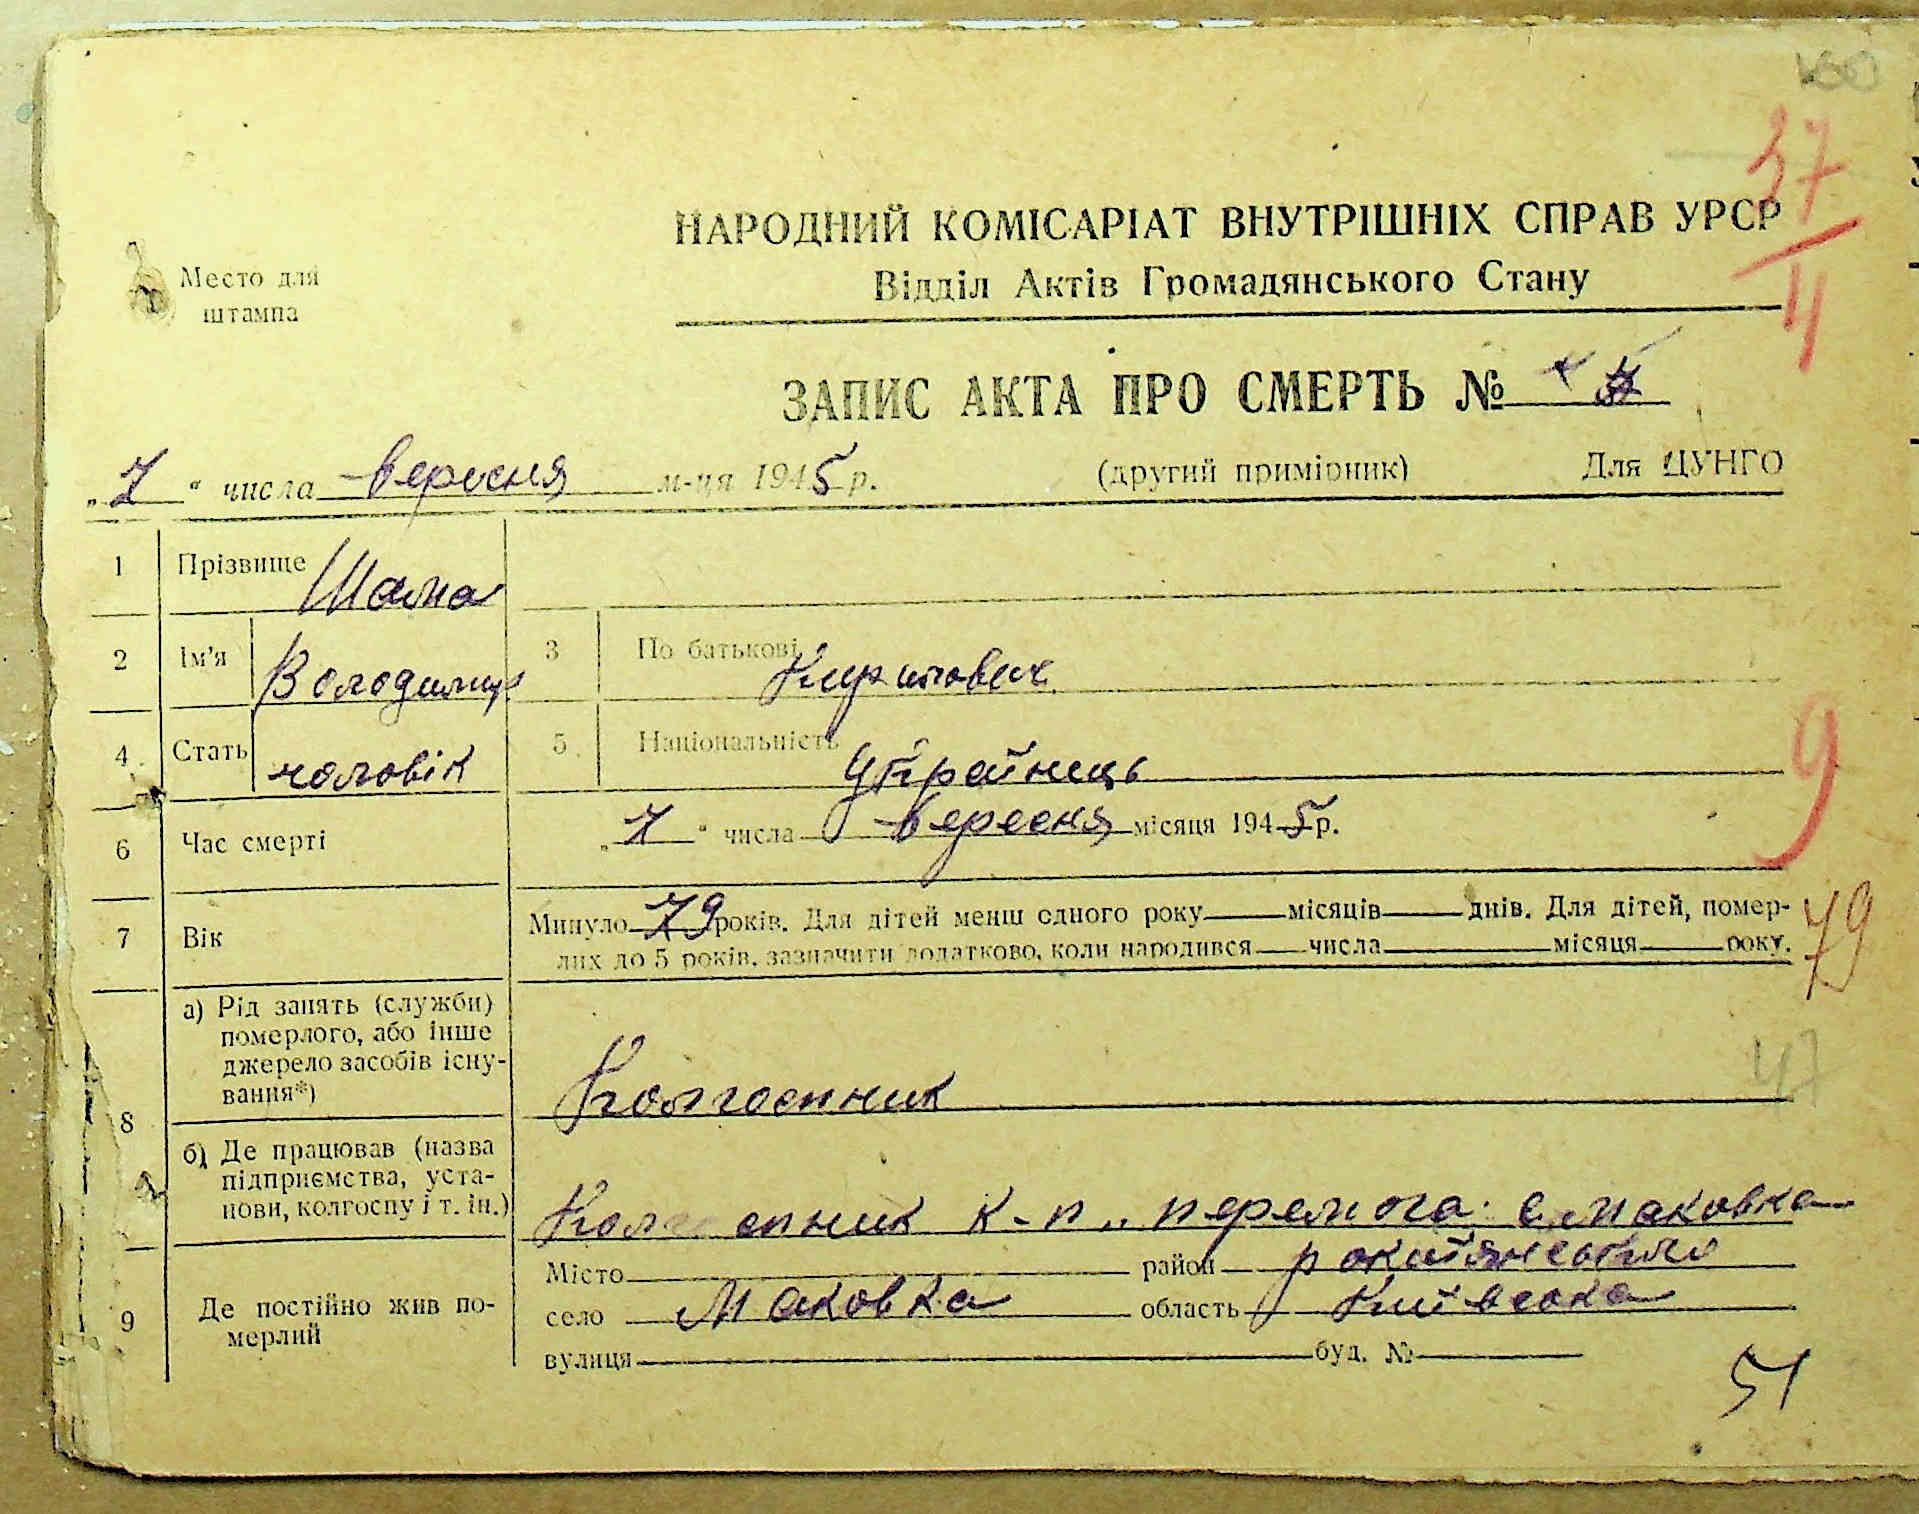 37
4
НАРОДНИЙ КОМІСАРІАТ ВНУТРІШНІХ СПРАВ УРСР
Відділ Актів Громадянського Стану
Место для
штампа
ЗАПИС АКТА ПРО СМЕРТЬ №
„7“ числа вересня м-ця 1945 р. (другий примірник) Для ЦУНГО
1 Прізвище Шама
2 Ім'я Володимир 3 По батькові
4 Стать чоловік 5 Національність Украйнець
6 Час смерті „7“ числа вересня місяця 1945 р.
9
7 Вік Минуло 79 років. Для дітей менш одного року місяців днів. Для дітей, помер-
лих до 5 років, зазначити додатково, коли народився числа місяця року.
79
8 а) Рід занять (служби)
померлого, або інше
джерело засобів існу-
вання*)
Колгоспник
47
б) Де працював (назва
підприємства, уста-
нови, колгоспу і т. ін.)
Колгоспник к-п „перемога" с. маковка
9 Де постійно жив по-
мерлий
Місто район
село Маковка область Київська
вулиця буд. №
51